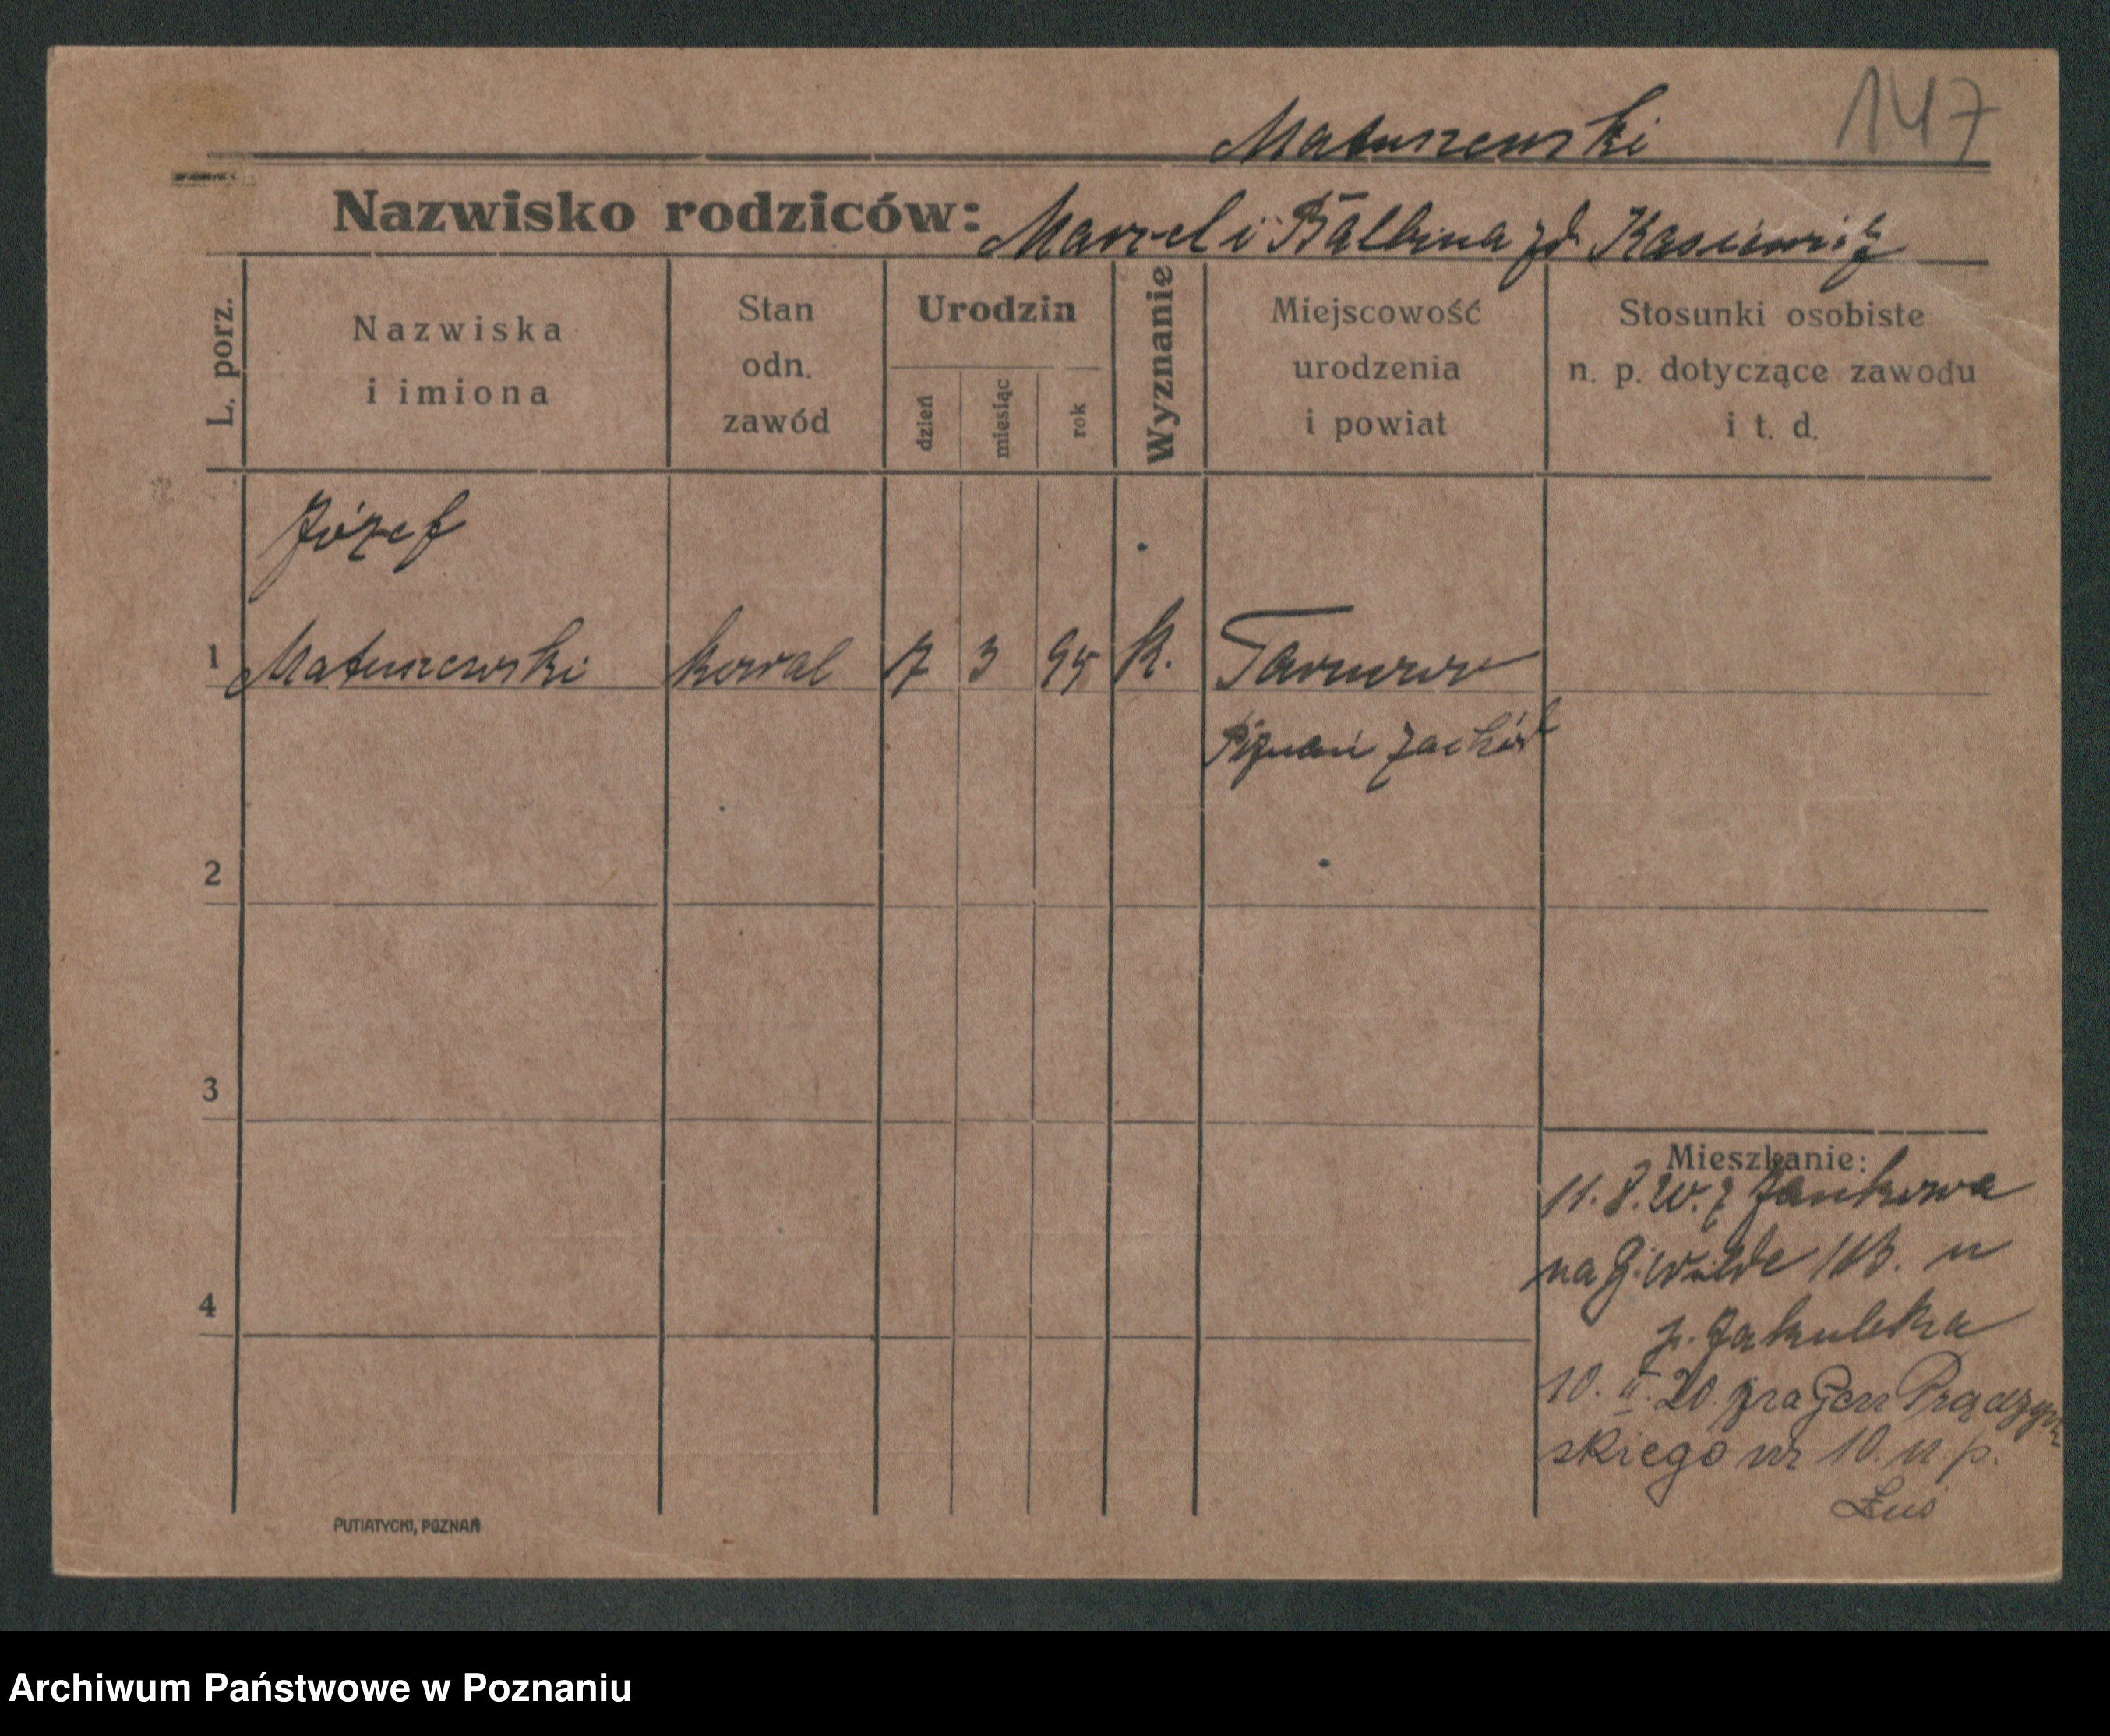 147
Matuszewski
Nazwisko rodziców: Marcel i Balbina zd Kasiewicz
L. porz.
Nazwiska
i imiona
Stan
odn.
zawód
Urodzin
dzień
miesiąc
rok
Wyznanie
Miejscowość
urodzenia
i powiat
Stosunki osobiste
n. p. dotyczące zawodu
i t. d.
Józef
1 Matuszewski kowal 7 3 95 K.
Poznań zachód
2
3
Mieszkanie:
11. 8. 20. z Jankowa
na G. Wilde 113. u
p. Jakubka
4
10. II. 20. na Gen Prądzyń
skiego nr 10. u p.
PUTIATYCKI, POZNAŃ
Archiwum Państwowe w Poznaniu